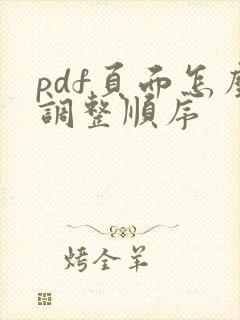 pdf頁面怎麼
調整順序
烤全羊